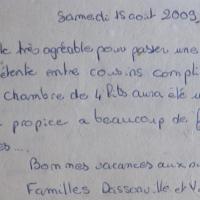 Samedi 15 août 2009,
le très agréable pour passer une
étente entre cousins compli
chambre de 4 lits aura été u
propice a beaucoup de f
es....
Bonnes vacances aux
Familles Dassonville et V